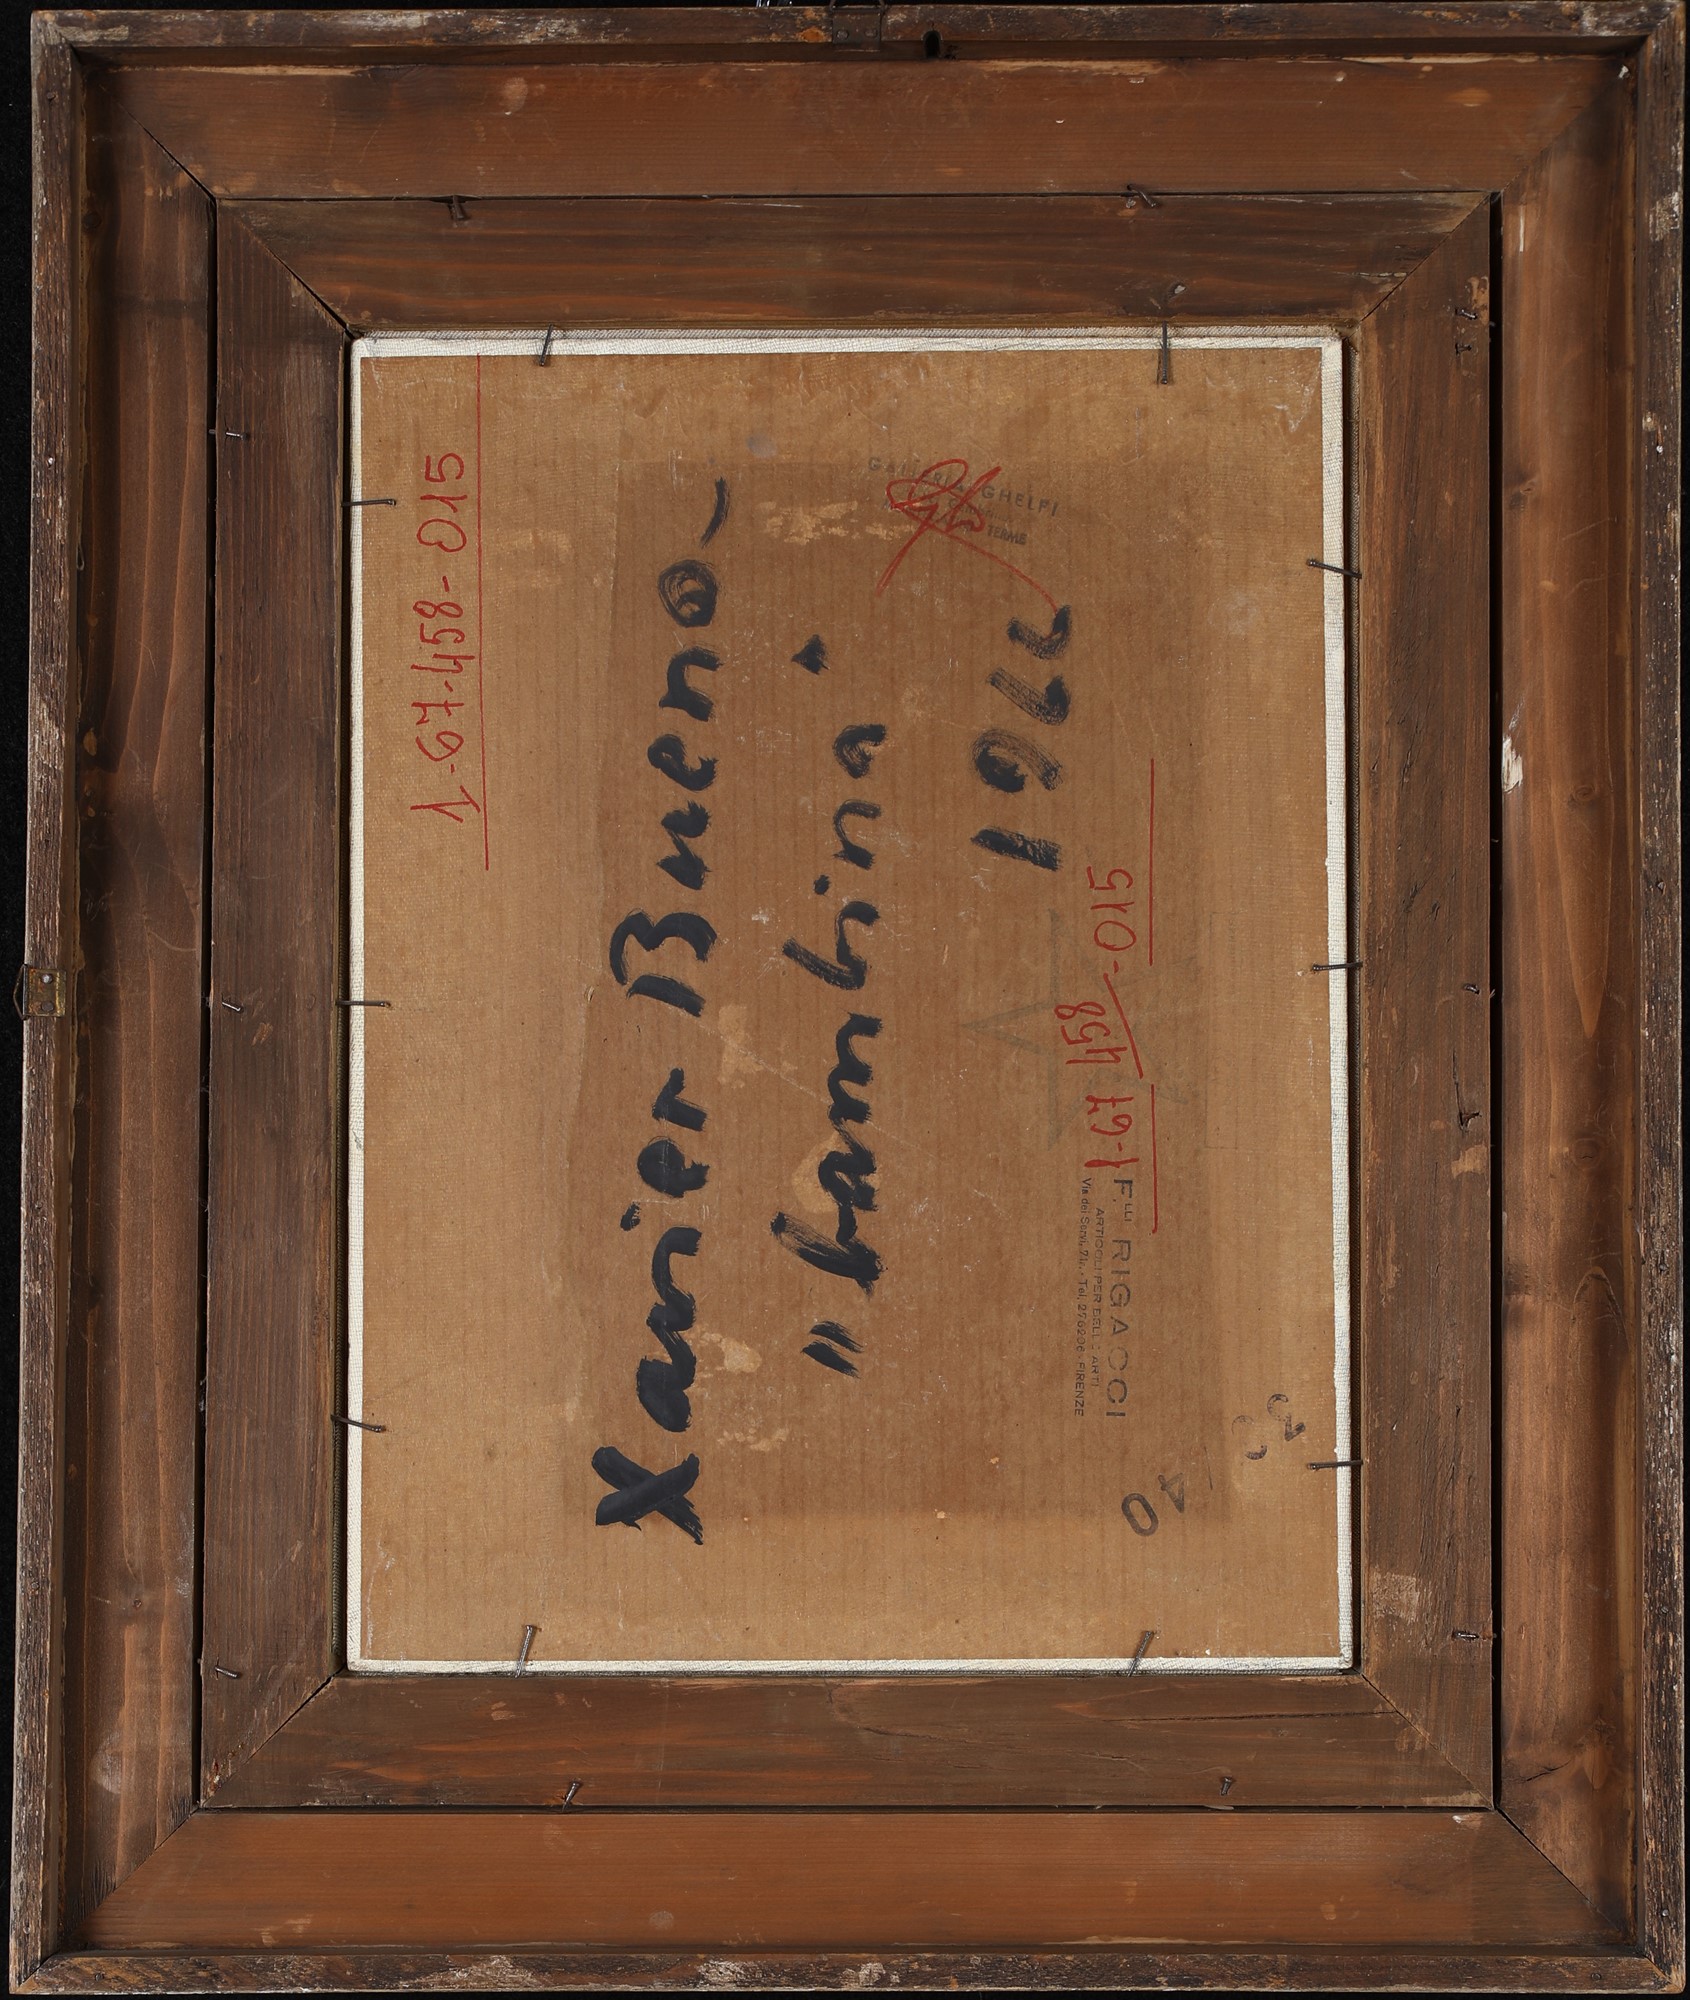 1-67-458-015
Xavier Bueno -
" bambina "
GALLERIA GHELFI
TERME
015
458
1-67
F.LLI RIGACCI
ARTICOLI PER BELLE ARTI
Via dei Servi, 71r. - Tel. FIRENZE
40